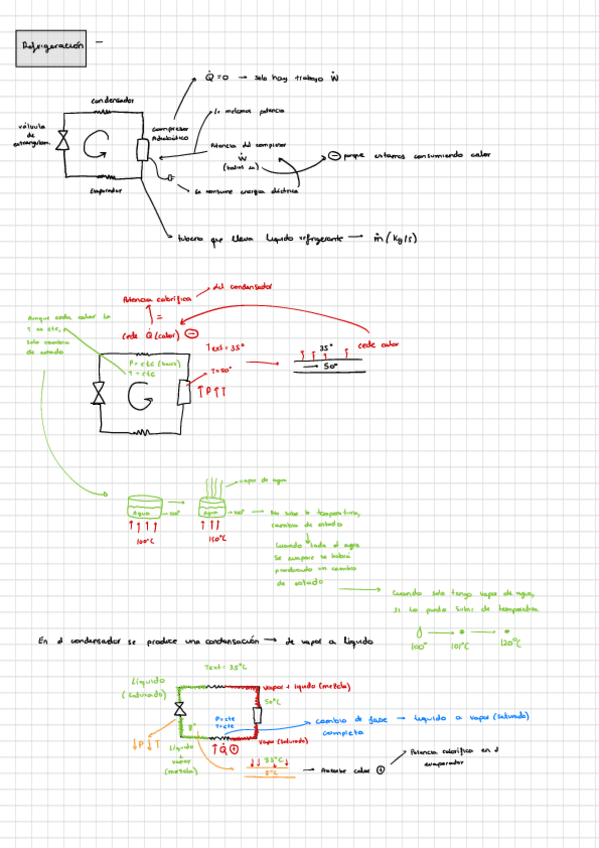 Refrigeración
Q̇ = 0 → solo hay trabajo Ẇ
condensador
válvula
de
compresor
Adiabático
la potencia
Potencia del compresor
Ẇ
⊖ porque estamos consumiendo calor
Se consume energía eléctrica
Evaporador
tubería que lleva líquido refrigerante → ṁ (kg/s)
Potencia calorífica
del condensador
=
cede Q̇ (calor) ⊖
Aunque ceda calor la
T es cte,
solo cambia
de estado
Text = 35°
T = 50°
↑P ↑T
P = cte
T = cte
35°
→ 50°
cede calor
vapor de agua
Agua
Agua
100°C
150°C
No sube la temperatura,
cambia de estado
Cuando toda el agua
Se evapore se habrá
producido un cambio
de estado
Cuando solo tengo vapor de agua,
si la puedo subir de temperatura
100° → 101°C → 120°C
En el condensador se produce una condensación → de vapor a líquido
Text = 35°C
Líquido
(saturado)
Vapor + líquido (mezcla)
50°C
P = cte
T = cte
cambio de fase → líquido a vapor (saturado)
completa
8°
↓P ↓T
Líquido
+
vapor
(mezcla)
↑Q̇ ⊕
Vapor (saturado)
35°C
8°C
→ Absorbe calor ⊕
Potencia calorífica en el
evaporador